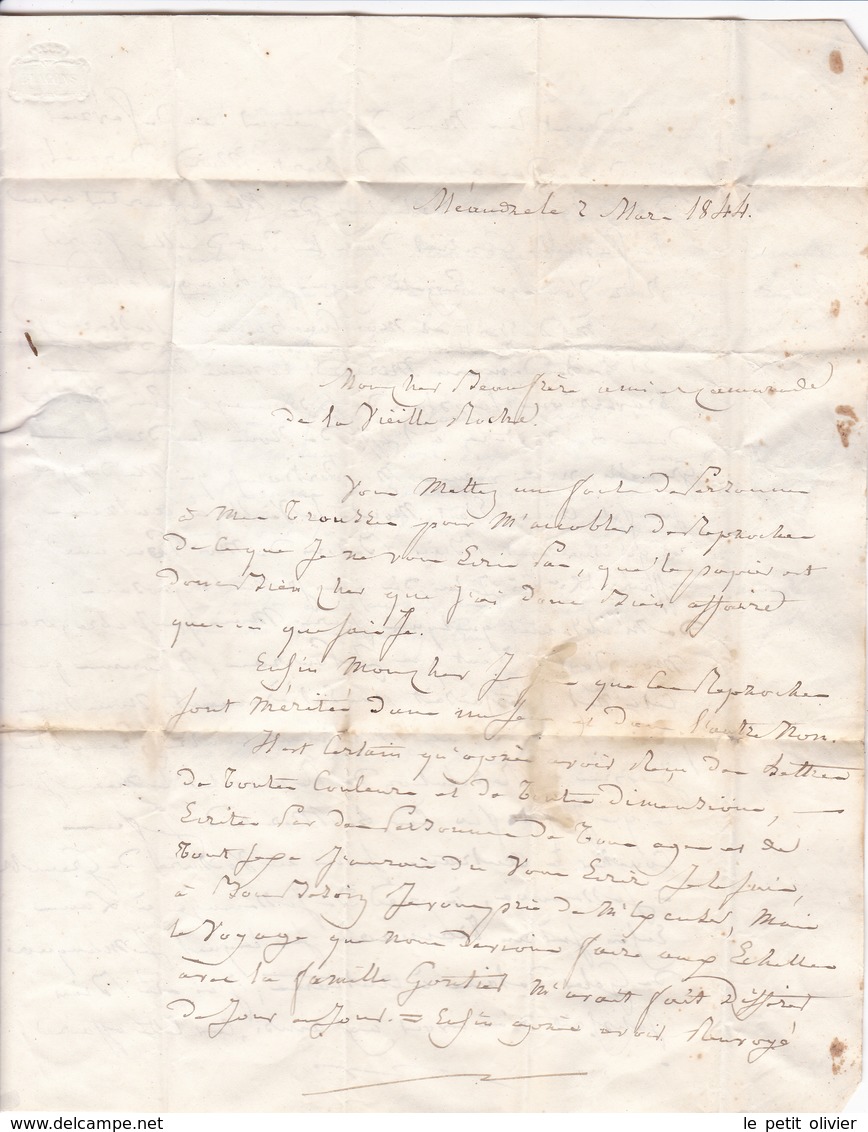 Méaudre le 2 Mars 1844.
Mon cher Beaufrère ami et camarade
de la Vieille Roche.
Vous Mettez une foule de Personnes
à Mes Trousses pour M'accabler de Reproches
de ce que Je ne vous Ecris Pas, que le papier est
donc Bien cher que j'ai donc Bien affaire
que fais Je.
Enfin Mon cher Je que les Reproches
sont Mérités dans un sens et dans l'autre Non.
Il est Certain qu'après avoir Reçu des Lettres
de Toutes Couleurs et de Toutes dimensions,
Ecrites Par des Personnes de Tous ages et de
Tout sexe J'aurois du Vous Ecrire Je le sais,
à Vous Je vous prie de M'Excuser, Mais
le Voyage que Nous devions faire aux Echelles
avec la famille Gontier M'avait fait Différer
de Jour en Jour. = Enfin après avoir Renvoyé
www.delcampe.net
le petit olivier